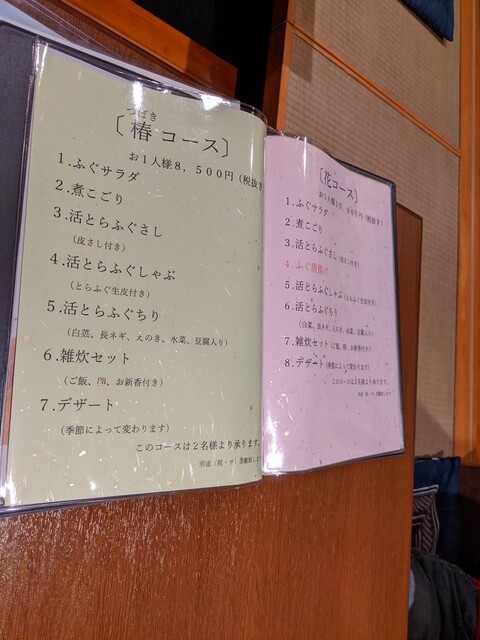 つばき
〔椿コース〕
お1人様8，500円（税抜き
1.ふぐサラダ
2.煮こごり
3.活とらふぐさし
（皮さし付き）
4.活とらふぐしゃぶ
（とらふぐ生皮付き）
5.活とらふぐちり
（白菜、長ネギ、えのき、水菜、豆腐入り）
6.雑炊セット
（ご飯、卵、お新香付き）
7.デザート
（季節によって変わります）
このコースは2名様より承ります。
別途（税・サ）
〔花コース〕
お1人様 （税抜き）
1.ふぐサラダ
2.煮こごり
3.活とらふぐさし（皮さし付き）
4.ふぐ唐揚げ
5.活とらふぐしゃぶ（とらふぐ生皮付き）
6.活とらふぐちり
（白菜、長ネギ、えのき、水菜、豆腐入り）
7.雑炊セット（ご飯、卵、お新香付き）
8.デザート（季節によって変わります）
このコースは2名様より承ります。
別途（税・サ）